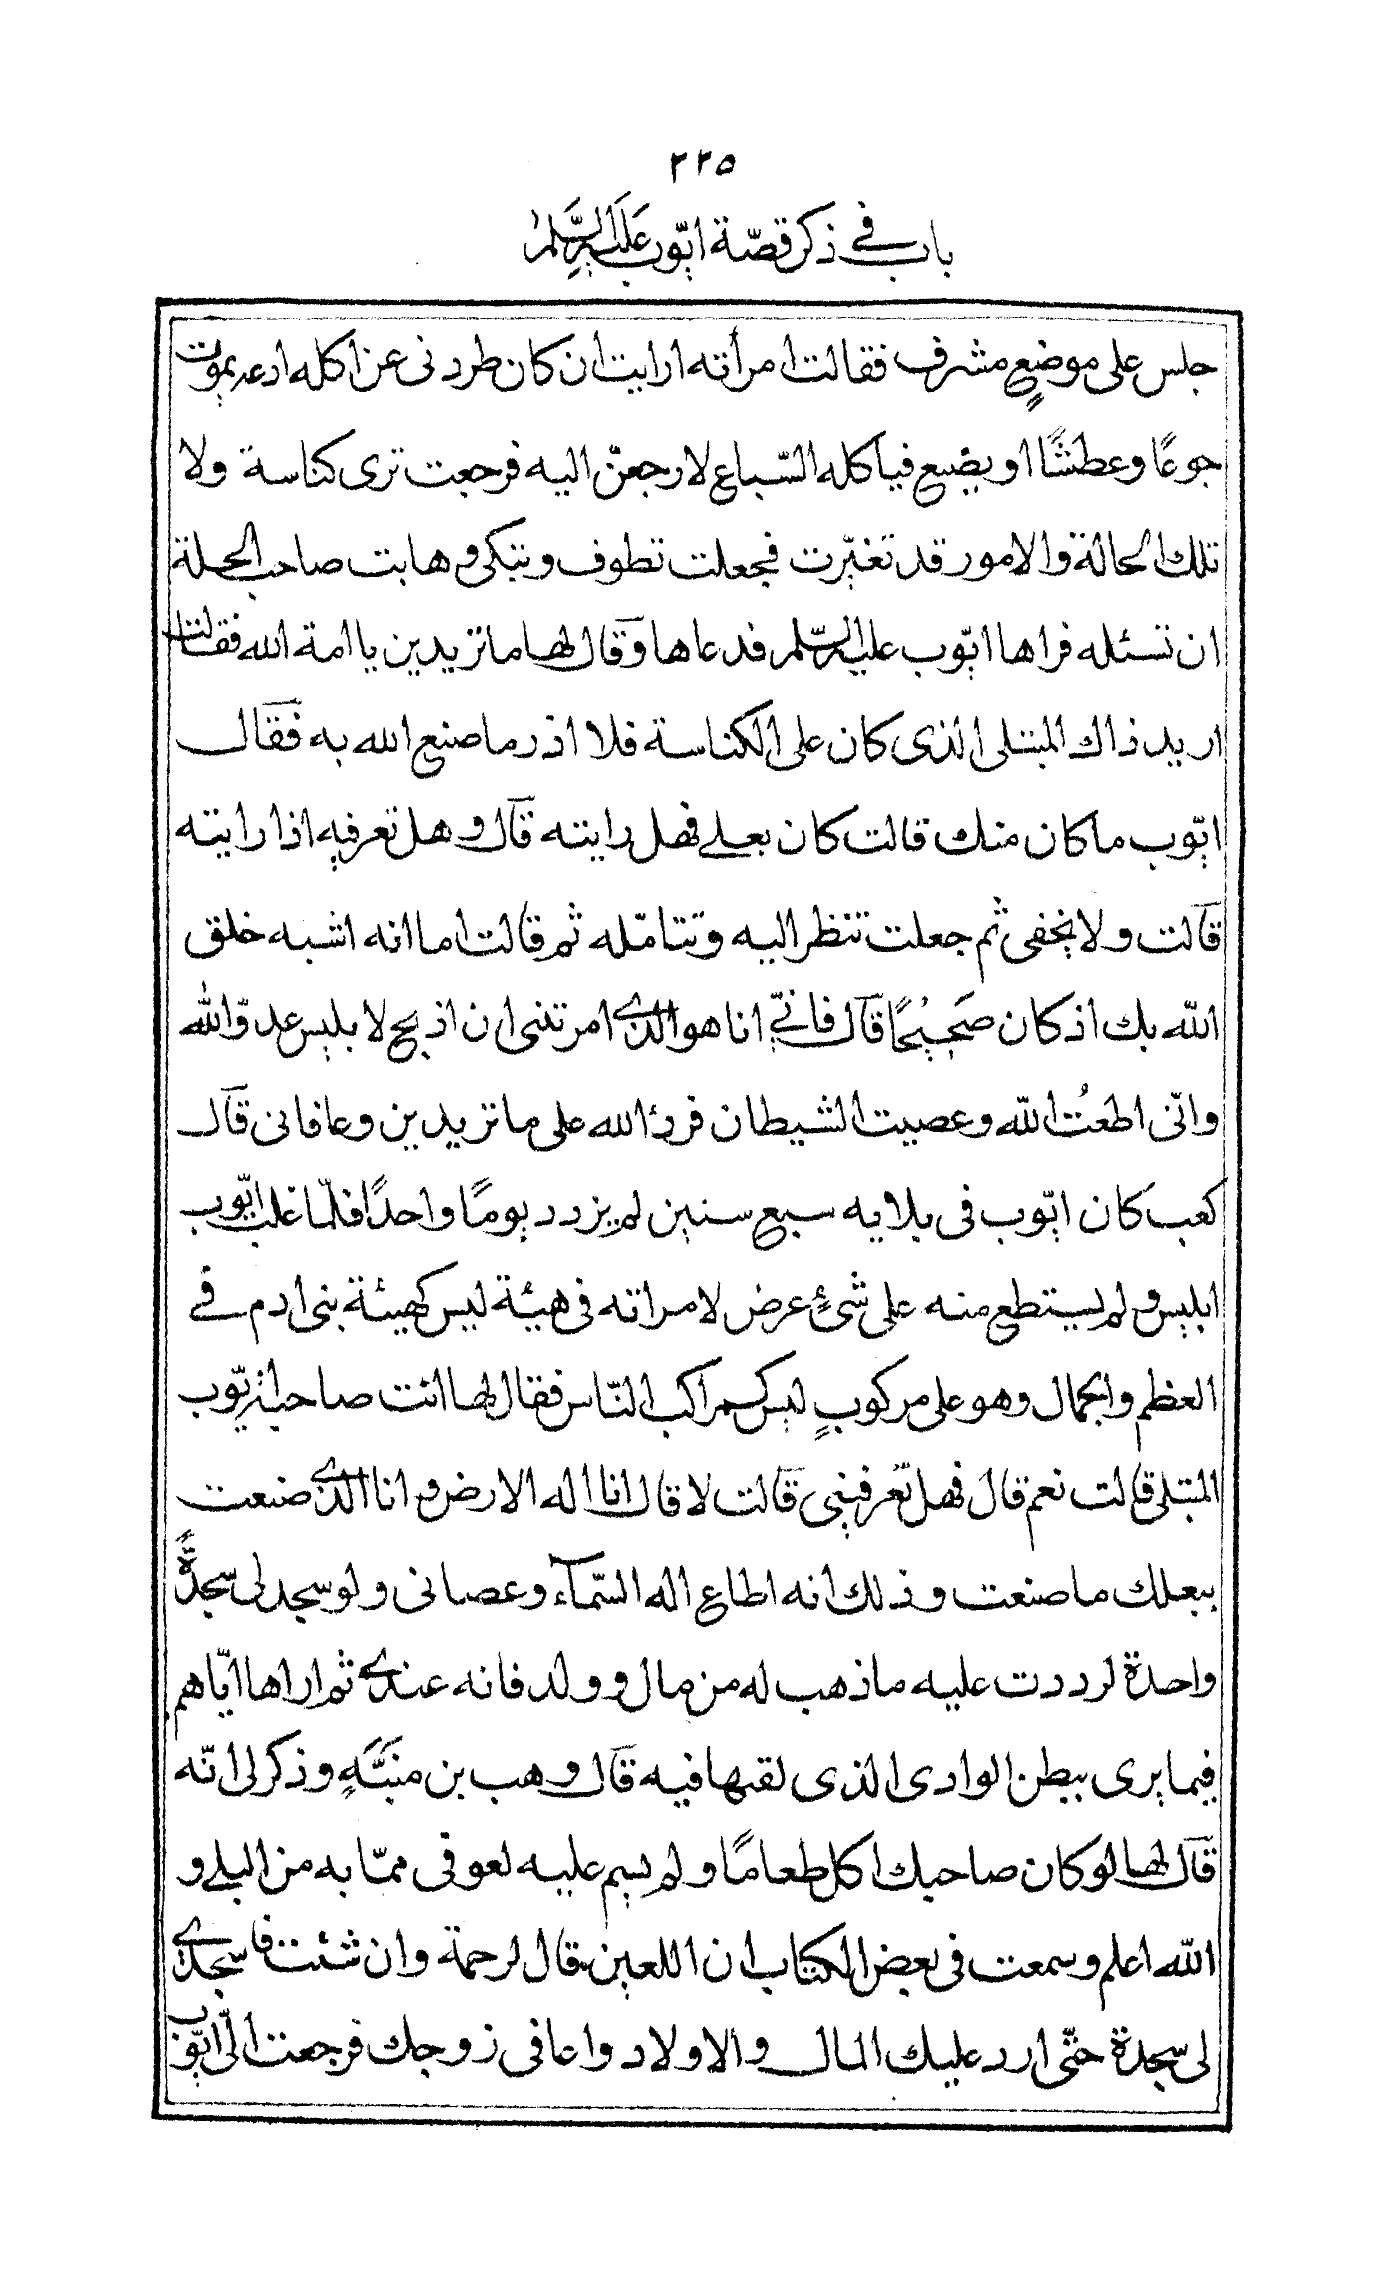 ٢٢٥
باب في ذكر قصّة ايّوب عَلَيْهِ السَّلٰم
جلس على موضعٍ مشرف فقالت امرأته ارايت ان كان طردنى عن اكله ادعه يموت
جوعًا وعطشًا او يضيع فيأكله السّباع لارجعنّ اليه فرجعت ترى كناسة ولا
تلك الحالة والامور قد تغيّرت فجعلت تطوف وتبكى وهابت صاحب الحلة
ان تسئله فراها ايّوب عليه السّلم فدعاها وقال لها ما تريدين يا امة الله فقالت
اريد ذاك المبتلى الذى كان على الكناسة فلا اذر ما صنع الله به فقال
ايّوب ما كان منك قالت كان بعلي فهل رايته قال وهل تعرفيه اذا رايته
قالت ولا يخفى ثم جعلت تنظر اليه وتتامّله ثم قالت اما انه اشبه خلق
الله بك اذ كان صَحِيْحًا قال فانّي انا هو الذي امرتنى ان اذبح لابليس عدوّ الله
وانّى اطَعْتُ الله وعصيت الشيطان فردّ الله على ما تريدين وعافانى قال
كعب كان ايّوب فى بلايه سبع سنين لم يزدد يومًا واحدًا فلمّا غلب ايّوب
ابليس ولم يستطع منه على شئٍ عرض لامراته فى هيئة ليس كهيئة بنى ادم في
العظم والجمال وهو على مركوبٍ ليس كمراكب النّاس فقال لها انت صاحبة ايّوب
المبتلى قالت نعم قال فهل تعرفينى قالت لا قال انا اله الارض و انا الذي صنعت
ببعلك ما صنعت وذلك انه اطاع اله السّمآء وعصانى ولو سجد لى سجدةً
واحدة لرددت عليه ما ذهب له من مال و ولد فانه عندي ثم اراها ايّاهم
فيما يرى ببطن الوادى الذى لقيها فيه قال وهب بن منبَّهٍ وذكر لى انّه
قال لها لو كان صاحبك اكل طعامًا ولم يسم عليه لعوفى ممّا به من البلي و
الله اعلم وسمعت فى بعض الكتاب ان اللعين قال لرحمة وان شئت فاسجدي
لى سجدة حتّى ارد عليك المال والاولاد واعافى زوجك فرجعت الى ايّوب